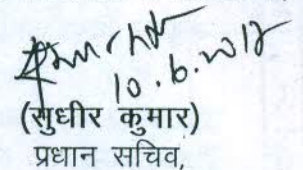 10.6.2012
(सुधीर कुमार)
प्रधान सचिव,